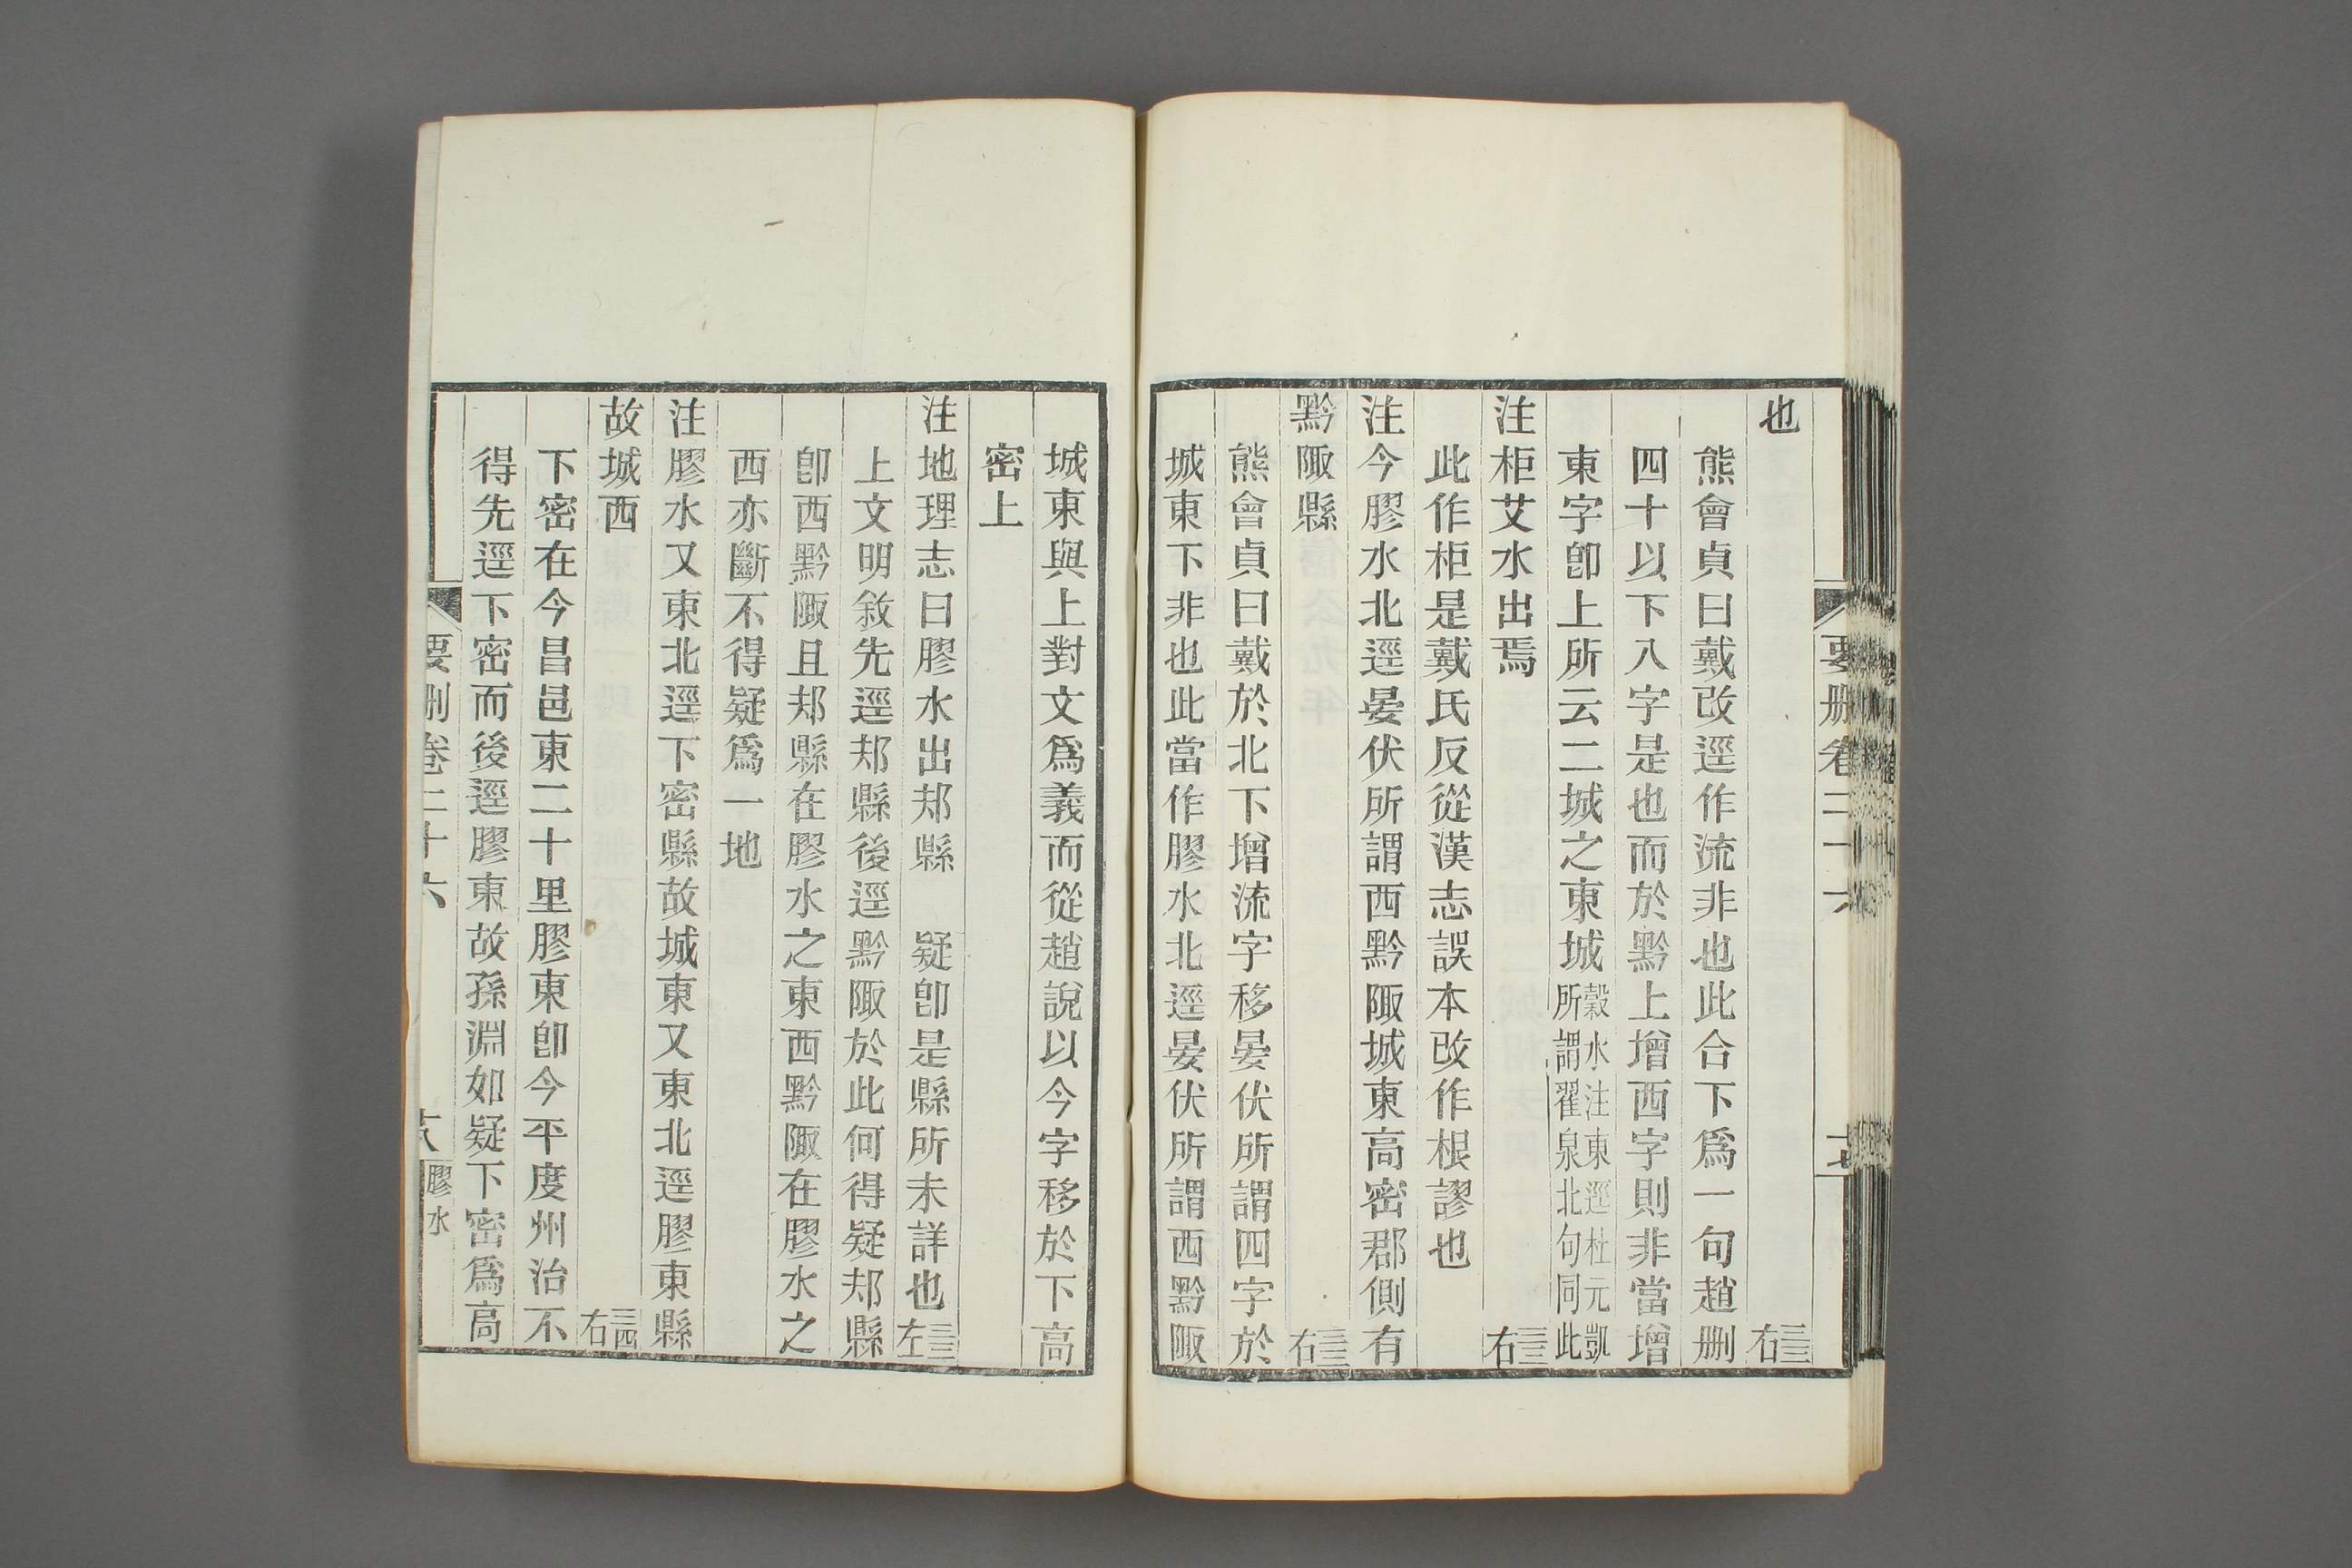 也 三三右
熊會貞曰戴改逕作流非也此合下爲一句趙刪
四十以下八字是也而於黔上增西字則非當增
東字卽上所云二城之東城穀水注東逕杜元凱所謂翟泉北句同此
注柜艾水出焉 三三右
此作柜是戴氏反從漢志誤本改作根謬也
注今膠水北逕晏伏所謂西黔陬城東高密郡側有
黔陬縣 三三右
熊會貞曰戴於北下增流字移晏伏所謂四字於
城東下非也此當作膠水北逕晏伏所謂西黔陬
要刪卷二十六
十七
城東與上對文爲義而從趙說以今字移於下高
密上
注地理志曰膠水出郱縣 疑卽是縣所未詳也 三三左
上文明敘先逕郱縣後逕黔陬於此何得疑郱縣
卽西黔陬且郱縣在膠水之東西黔陬在膠水之
西亦斷不得疑爲一地
注膠水又東北逕下密縣故城東又東北逕膠東縣
故城西 三四右
下密在今昌邑東二十里膠東卽今平度州治不
得先逕下密而後逕膠東故孫淵如疑下密爲高
要刪卷二十六
十八
膠水